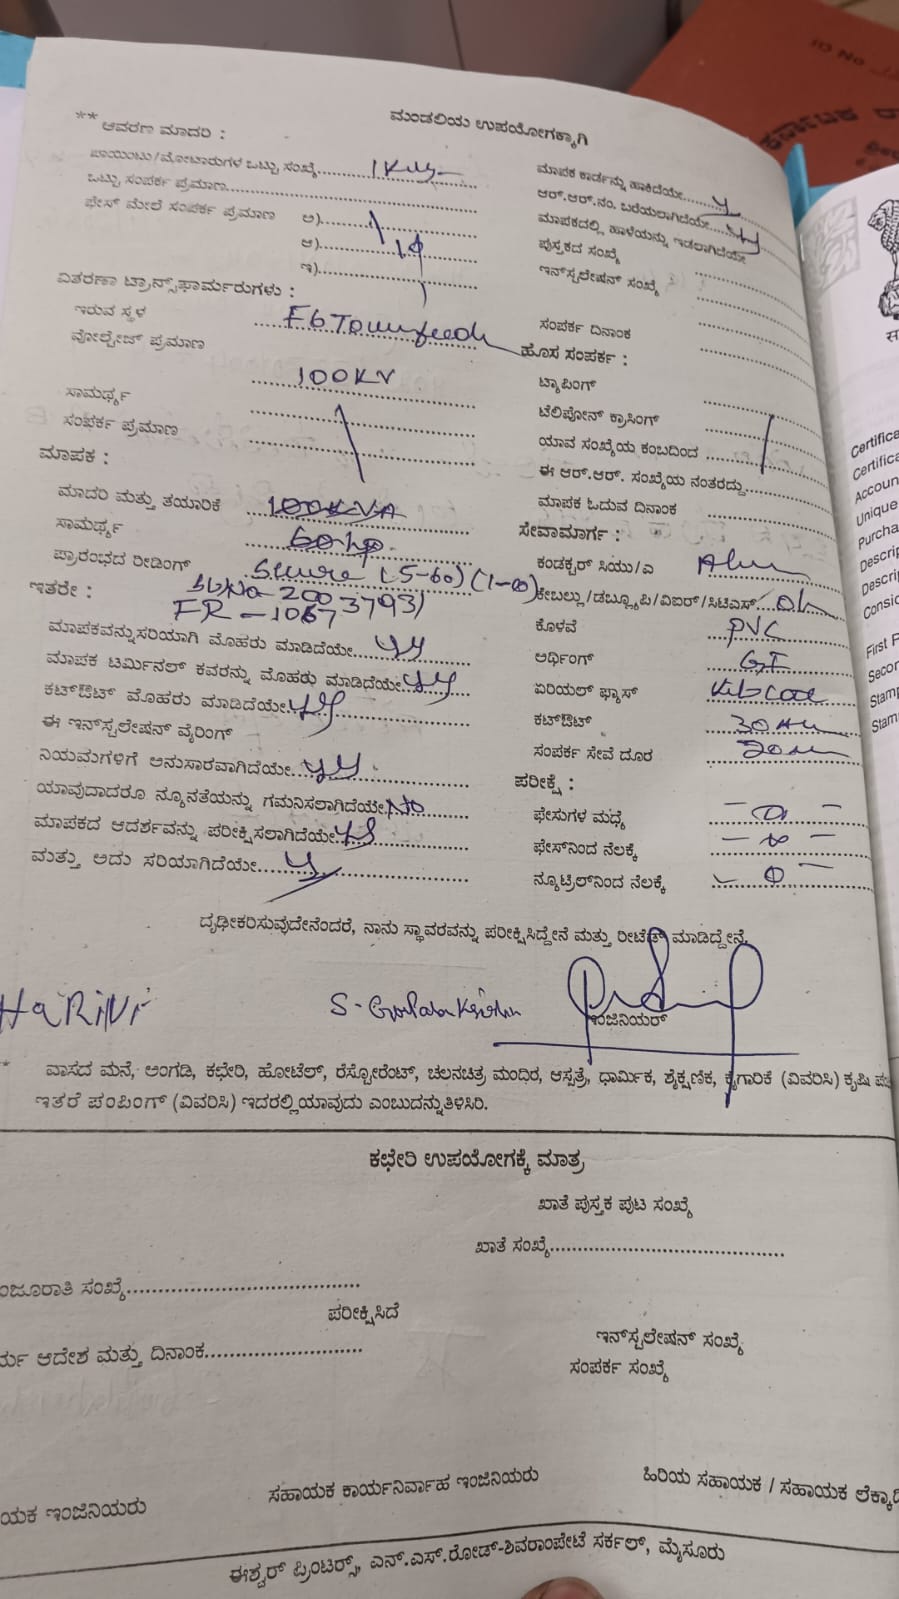 ಮಂಡಲಿಯ ಉಪಯೋಗಕ್ಕಾಗಿ
** ಆವರಣ ಮಾದರಿ :
ಪಾಯಿಂಟು/ಮೋಟಾರುಗಳ ಒಟ್ಟು ಸಂಖ್ಯೆ
ಒಟ್ಟು ಸಂಪರ್ಕ ಪ್ರಮಾಣ
ಫೇಸ್ ಮೇಲೆ ಸಂಪರ್ಕ ಪ್ರಮಾಣ ಅ)
ಆ) 1φ
ಇ)
ವಿತರಣಾ ಟ್ರಾನ್ಸ್‌ಫಾರ್ಮರುಗಳು :
ಇರುವ ಸ್ಥಳ
ವೋಲ್ಟೇಜ್ ಪ್ರಮಾಣ
100KV
ಸಾಮರ್ಥ್ಯ
ಸಂಪರ್ಕ ಪ್ರಮಾಣ
ಮಾಪಕ :
ಮಾದರಿ ಮತ್ತು ತಯಾರಿಕೆ 100KVA
ಸಾಮರ್ಥ್ಯ 60hp
ಪ್ರಾರಂಭದ ರೀಡಿಂಗ್ Secure (5-60)
ಇತರೇ : Sl No 20037931
FR - 1067
ಮಾಪಕವನ್ನು ಸರಿಯಾಗಿ ಮೊಹರು ಮಾಡಿದೆಯೇ
ಮಾಪಕ ಟರ್ಮಿನಲ್ ಕವರನ್ನು ಮೊಹರು ಮಾಡಿದೆಯೇ
ಕಟ್‌ಔಟ್ ಮೊಹರು ಮಾಡಿದೆಯೇ
ಈ ಇನ್‌ಸ್ಟಲೇಷನ್ ವೈರಿಂಗ್
ನಿಯಮಗಳಿಗೆ ಅನುಸಾರವಾಗಿದೆಯೇ
ಯಾವುದಾದರೂ ನ್ಯೂನತೆಯನ್ನು ಗಮನಿಸಲಾಗಿದೆಯೇ No
ಮಾಪಕದ ಆದರ್ಶವನ್ನು ಪರೀಕ್ಷಿಸಲಾಗಿದೆಯೇ
ಮತ್ತು ಅದು ಸರಿಯಾಗಿದೆಯೇ
ಮಾಪಕ ಕಾರ್ಡನ್ನು ಹಾಕಿದೆಯೇ
ಆರ್.ಆರ್.ನಂ. ಬರೆಯಲಾಗಿದೆಯೇ
ಮಾಪಕದಲ್ಲಿ ಹಾಳೆಯನ್ನು ಇಡಲಾಗಿದೆಯೇ
ಪುಸ್ತಕದ ಸಂಖ್ಯೆ
ಇನ್‌ಸ್ಟಲೇಷನ್ ಸಂಖ್ಯೆ
ಸಂಪರ್ಕ ದಿನಾಂಕ
ಹೊಸ ಸಂಪರ್ಕ :
ಟ್ಯಾಪಿಂಗ್
ಟೆಲಿಪೋನ್ ಕ್ರಾಸಿಂಗ್
ಯಾವ ಸಂಖ್ಯೆಯ ಕಂಬದಿಂದ
ಈ ಆರ್.ಆರ್. ಸಂಖ್ಯೆಯ ನಂತರದ್ದು
ಮಾಪಕ ಓದುವ ದಿನಾಂಕ
ಸೇವಾಮಾರ್ಗ :
ಕಂಡಕ್ಟರ್ ಸಿಯು/ಎ
ಕೇಬಲ್ಲು/ಡಬ್ಲ್ಯೂಪಿ/ವಿಐರ್/ಸಿಟಿಎಸ್
ಕೊಳವೆ PVC
ಅರ್ಥಿಂಗ್ GI
ಏರಿಯಲ್ ಫ್ಯಾಸ್
ಕಟ್‌ಔಟ್
ಸಂಪರ್ಕ ಸೇವೆ ದೂರ
ಪರೀಕ್ಷೆ :
ಫೇಸುಗಳ ಮಧ್ಯೆ
ಫೇಸ್‌ನಿಂದ ನೆಲಕ್ಕೆ
ನ್ಯೂಟ್ರಿಲ್‌ನಿಂದ ನೆಲಕ್ಕೆ
ದೃಢೀಕರಿಸುವುದೇನೆಂದರೆ, ನಾನು ಸ್ಥಾವರವನ್ನು ಪರೀಕ್ಷಿಸಿದ್ದೇನೆ ಮತ್ತು ರೀಟೆಡ್ ಮಾಡಿದ್ದೇನೆ.
HaRiNi
S-Gopalakrishn
ಇಂಜಿನಿಯರ್
* ವಾಸದ ಮನೆ, ಅಂಗಡಿ, ಕಛೇರಿ, ಹೋಟೆಲ್, ರೆಸ್ಟೋರೆಂಟ್, ಚಲನಚಿತ್ರ ಮಂದಿರ, ಆಸ್ಪತ್ರೆ, ಧಾರ್ಮಿಕ, ಶೈಕ್ಷಣಿಕ, ಕೈಗಾರಿಕೆ (ವಿವರಿಸಿ) ಕೃಷಿ
ಇತರೆ ಪಂಪಿಂಗ್ (ವಿವರಿಸಿ) ಇದರಲ್ಲಿ ಯಾವುದು ಎಂಬುದನ್ನು ತಿಳಿಸಿರಿ.
ಕಛೇರಿ ಉಪಯೋಗಕ್ಕೆ ಮಾತ್ರ
ಖಾತೆ ಪುಸ್ತಕ ಪುಟ ಸಂಖ್ಯೆ
ಖಾತೆ ಸಂಖ್ಯೆ
ಂಜೂರಾತಿ ಸಂಖ್ಯೆ
ಪರೀಕ್ಷಿಸಿದೆ
ಇನ್‌ಸ್ಟಲೇಷನ್ ಸಂಖ್ಯೆ
ಆದೇಶ ಮತ್ತು ದಿನಾಂಕ
ಸಂಪರ್ಕ ಸಂಖ್ಯೆ
ಯಕ ಇಂಜಿನಿಯರು
ಸಹಾಯಕ ಕಾರ್ಯನಿರ್ವಾಹ ಇಂಜಿನಿಯರು
ಹಿರಿಯ ಸಹಾಯಕ / ಸಹಾಯಕ ಲೆಕ್ಕಾ
ಈಶ್ವರ್ ಪ್ರಿಂಟರ್ಸ್, ಎನ್.ಎಸ್.ರೋಡ್-ಶಿವರಾಂಪೇಟೆ ಸರ್ಕಲ್, ಮೈಸೂರು
ID No
Certifica
Certifica
Accoun
Unique
Purcha
Descrip
Descri
Consi
First P
Secon
Stam
Stam